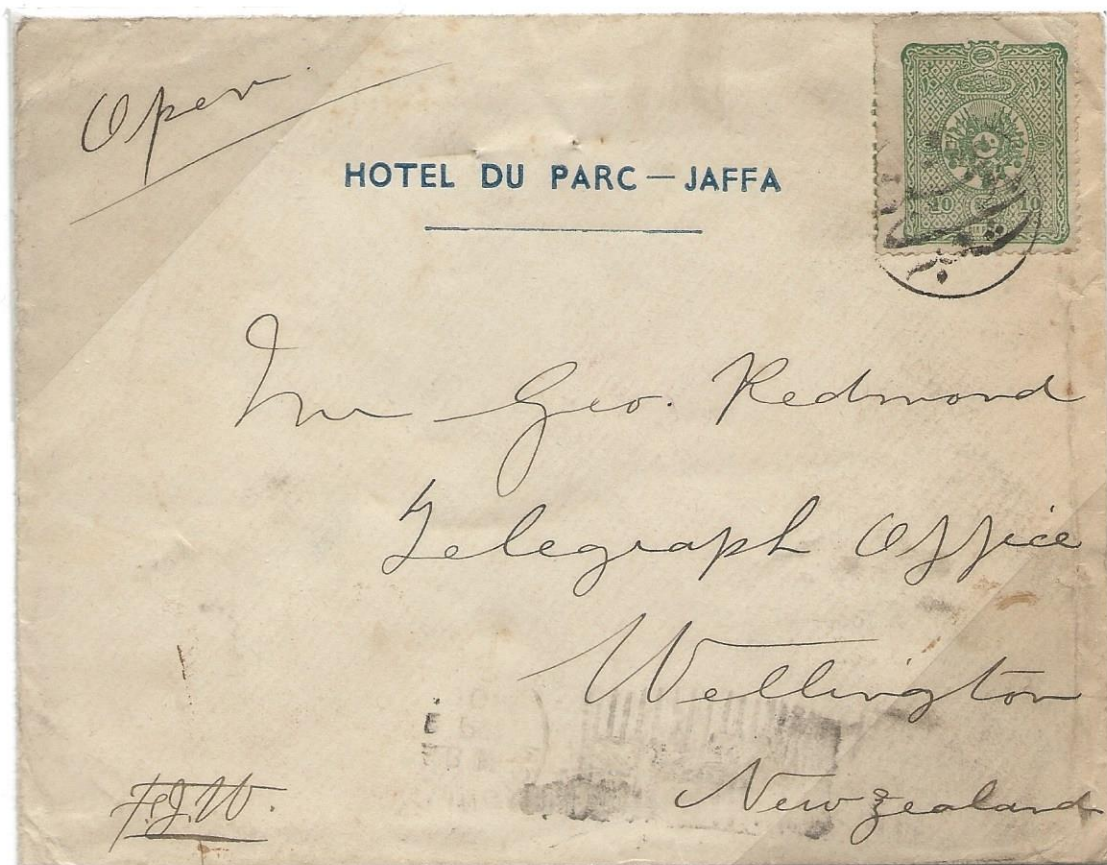 Open.
HOTEL DU PARC — JAFFA
10 10
Mr Geo. Redmond
Telegraph Office
Wellington
New Zealand
F.J.W.